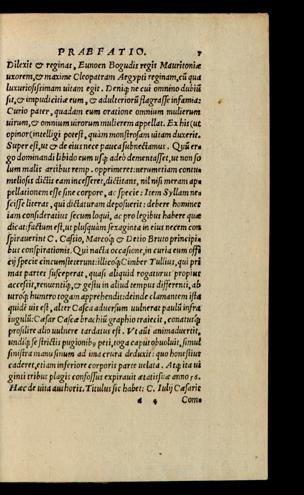 PRÆFATIO. 7
Dilexit & reginas, Eunoen Bogudis regis Mauritoniæ
uxorem, & maxime Cleopatram Ægypti reginam, cū qua
luxuriosissimam uitam egit. Deniq; ne cui omnino dubiū
sit, & impudicitiæ eum, & adulteriorū flagrasse infamia:
Curio pater, quadam eum oratione omnium mulierum
uirum, & omnium uirorum mulierem appellat. Ex his (ut
opinor) intelligi potest, quàm monstrosam uitam duxerit.
Super est, ut & de eius nece pauca subnectamus. Quū er
go dominandi libido eum usq; adeò dementasset, ut non so
lum malis artibus remp. opprimeret: uerumetiam contu
meliosis dictis eam incesseret, dictitans, nil nisi meram ap
pellationem esse sine corpore, ac specie: Item Syllam nes
scisse literas, qui dictaturam deposuerit: debere homines
iam consideratius secum loqui, ac pro legibus habere quæ
dicat: factum est, ut plusquàm sexaginta in eius necem con
spirauerint C. Cassio, Marcoq; & Decio Bruto principi
bus conspirationis. Qui nacta occasione, in curia eum offi
cij specie circumsteterunt: illicoq; Cimber Tullius, qui pri
mas partes susceperat, quasi aliquid rogaturus propius
accessit, renuentiq;, & gestu in aliud tempus differenti, ab
utroq; humero togam apprehendit: deinde clamantem ista
quidē uis est, alter Casca aduersum uulnerat paulū infra
iugulū: Cæsar Cascæ brachiū graphio traiecit, conatusq;
prosilire alio uulnere tardatus est. Vt aūt animaduertit,
undiq; se strictis pugionib; peti, toga caput obuoluit, simul
sinistra manu sinum ad ima crura deduxit: quo honestius
caderet, etiam inferiore corporis parte uelata. Atq; ita ui
ginti tribus plagis confossus expirauit ætatis suæ anno 56.
Hæc de uita authoris. Titulus sic habet: C. Iulij Cæsaris
a 4 Com=